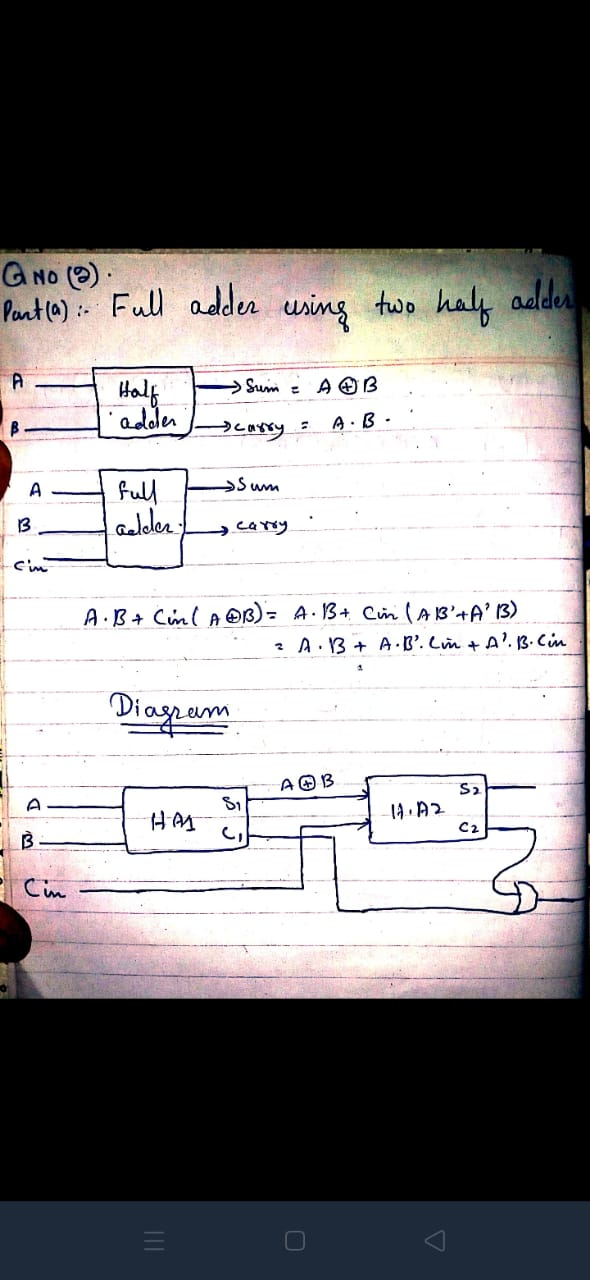 Q NO (2).
Part(a) :- Full adder using two half adder
A
B
Half
adder
→ Sum = A ⊕ B
→ carry = A . B .
A
B
Cin
full
adder
→ Sum
→ carry
A . B + Cin ( A ⊕ B) = A . B + Cin ( A B' + A' B)
= A . B + A . B' . Cin + A' . B . Cin
Diagram
A
B
Cin
HA1
S1
C1
A ⊕ B
H.A2
S2
C2